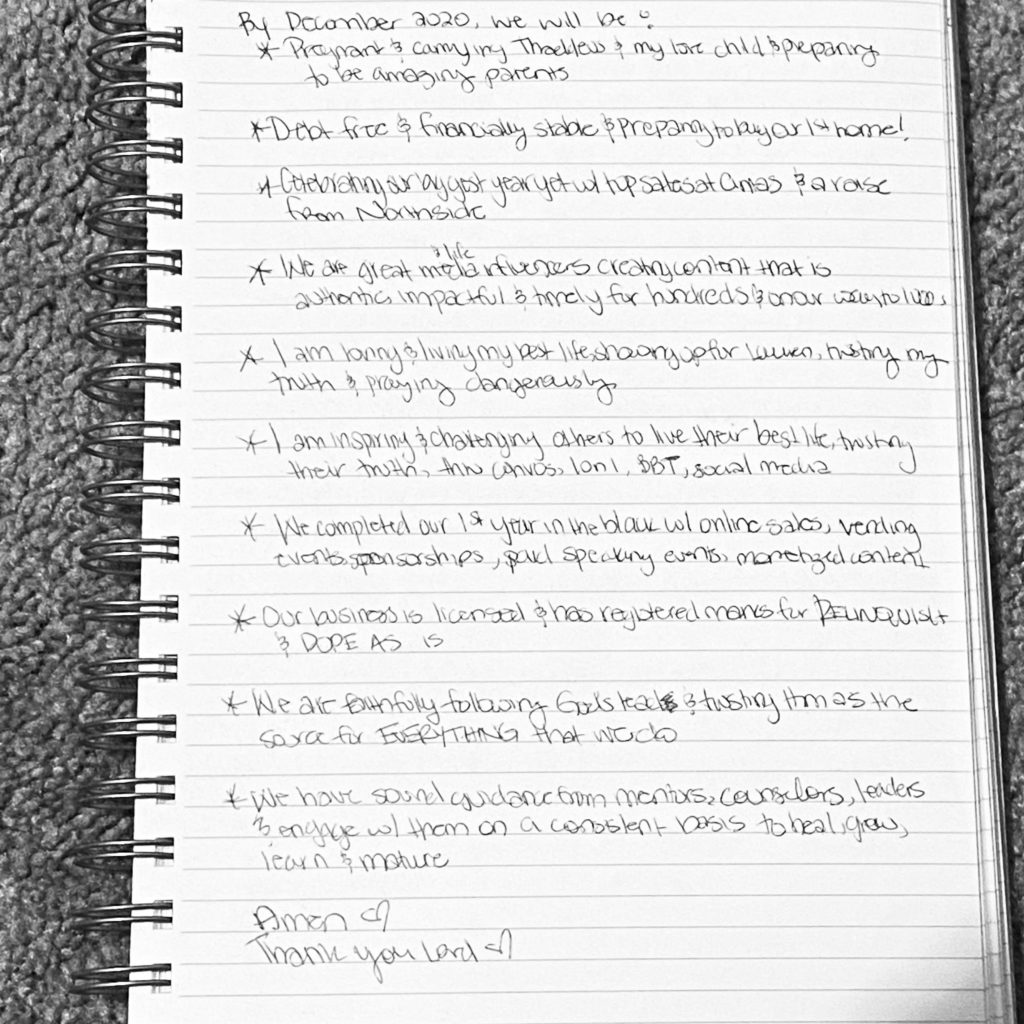 By December 2020, we will be:
* Pregnant & carrying Thaddeus & my love child & preparing
to be amazing parents
* Debt free & financially stable & preparing to buy our 1st home!
* Celebrating our biggest year yet w/ top sales at Canvas & a raise
from Northside
& life
* We are great media influencers creating content that is
authentic, impactful & timely for hundreds & on our way to
* I am loving & living my best life, showing up for, trusting my
truth & praying dangerously
* I am inspiring & challenging others to live their best life, trusting
their truth, thru canvas, 1on1, BBT, social media
* We completed our 1st year in the black w/ online sales, vending
events, sponsorships, paid speaking events, monetized content
* Our business is licensed & has registered marks for RELINQUISH
& DOPE AS IS
* We are faithfully following God's lead & trusting Him as the
source for EVERYTHING that we do
* We have sound guidance from mentors, counselors, leaders
& engage w/ them on a consistent basis to heal, grow,
learn & mature
Amen ♡
Thank you Lord ♡